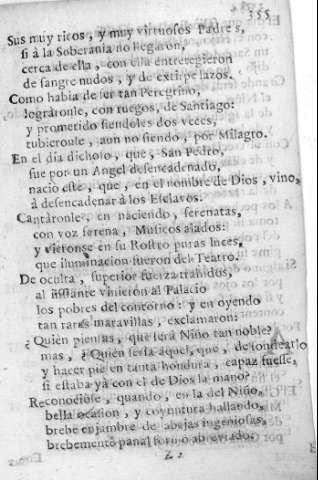 355
Sus muy ricos, y muy virtuosos Padres,
si à la Soberania no llegaron,
cerca de ella, con ella entretegieron
de sangre nudos, y de estirpe lazos.
Como habia de ser tan Peregrino,
lográronle, con ruegos, de Santiago:
y prometido siendoles dos veces,
tubieronle, aun no siendo, por Milagro.
En el dia dichoso, que, San Pedro,
fue por un Angel desencadenado,
nacio este, que, en el nombre de Dios, vino,
à desencadenar à los Esclavos.
Cantáronle, en naciendo, serenatas,
con voz serena, Musicos alados:
y vieronse en su Rostro puras luces,
que iluminacion fueron del Teatro.
De oculta, superior fuerza trahidos,
al instante vinieron al Palacio
los pobres del contorno: y en oyendo
tan raras maravillas, exclamaron:
¿Quien piensas, que será Niño tan noble?
mas, ¿Quien sería aquel, que, de sondearlo
y hacer pie en tanta hondura, capaz fuesse,
si estaba yà con el de Dios la mano?
Reconociose, quando, en la del Niño,
bella ocasion, y coyuntura hallando,
brebe enjambre de abejas ingeniosas,
brebemente panal formò abreviado.
Z 2